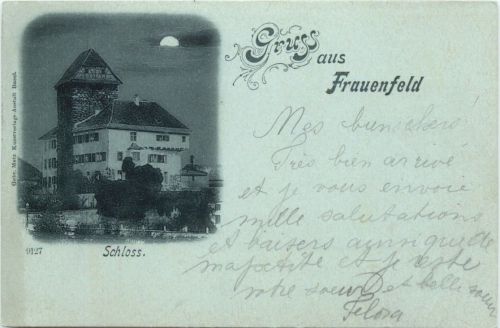 Gruss
aus
Frauenfeld
Gebr. Metz Kunstverlags-Anstalt Basel.
9127
Schloss.
Mes
Très bien arrivé
et je vous envoie
mille salutations
et baisers ainsi que
et je reste
votre soeur et belle soeur